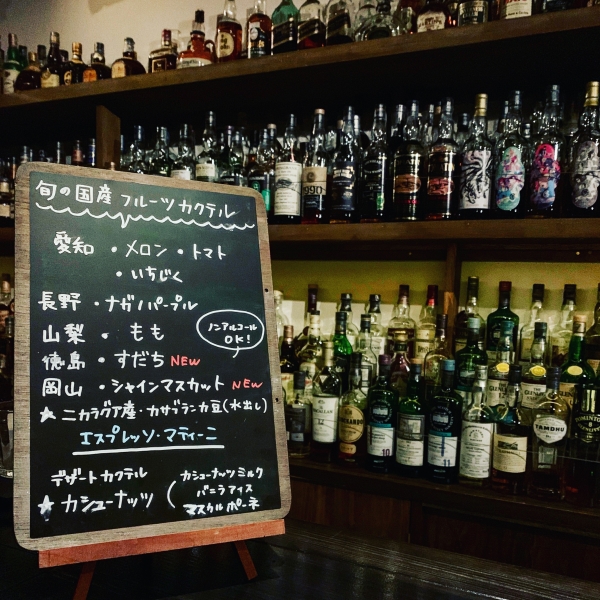 旬の国産 フルーツカクテル
愛知 ・メロン ・トマト
・いちじく
長野 ・ナガノパープル
山梨 ・もも
ノンアルコール
OK!
徳島 ・すだち NEW
岡山 ・シャインマスカット NEW
★ニカラグア産・カサブランカ豆(水出し)
エスプレッソ・マティーニ
デザートカクテル
★カシューナッツ
(カシューナッツミルク
バニラアイス
マスカルポーネ
1990
10
11
TAMDHU